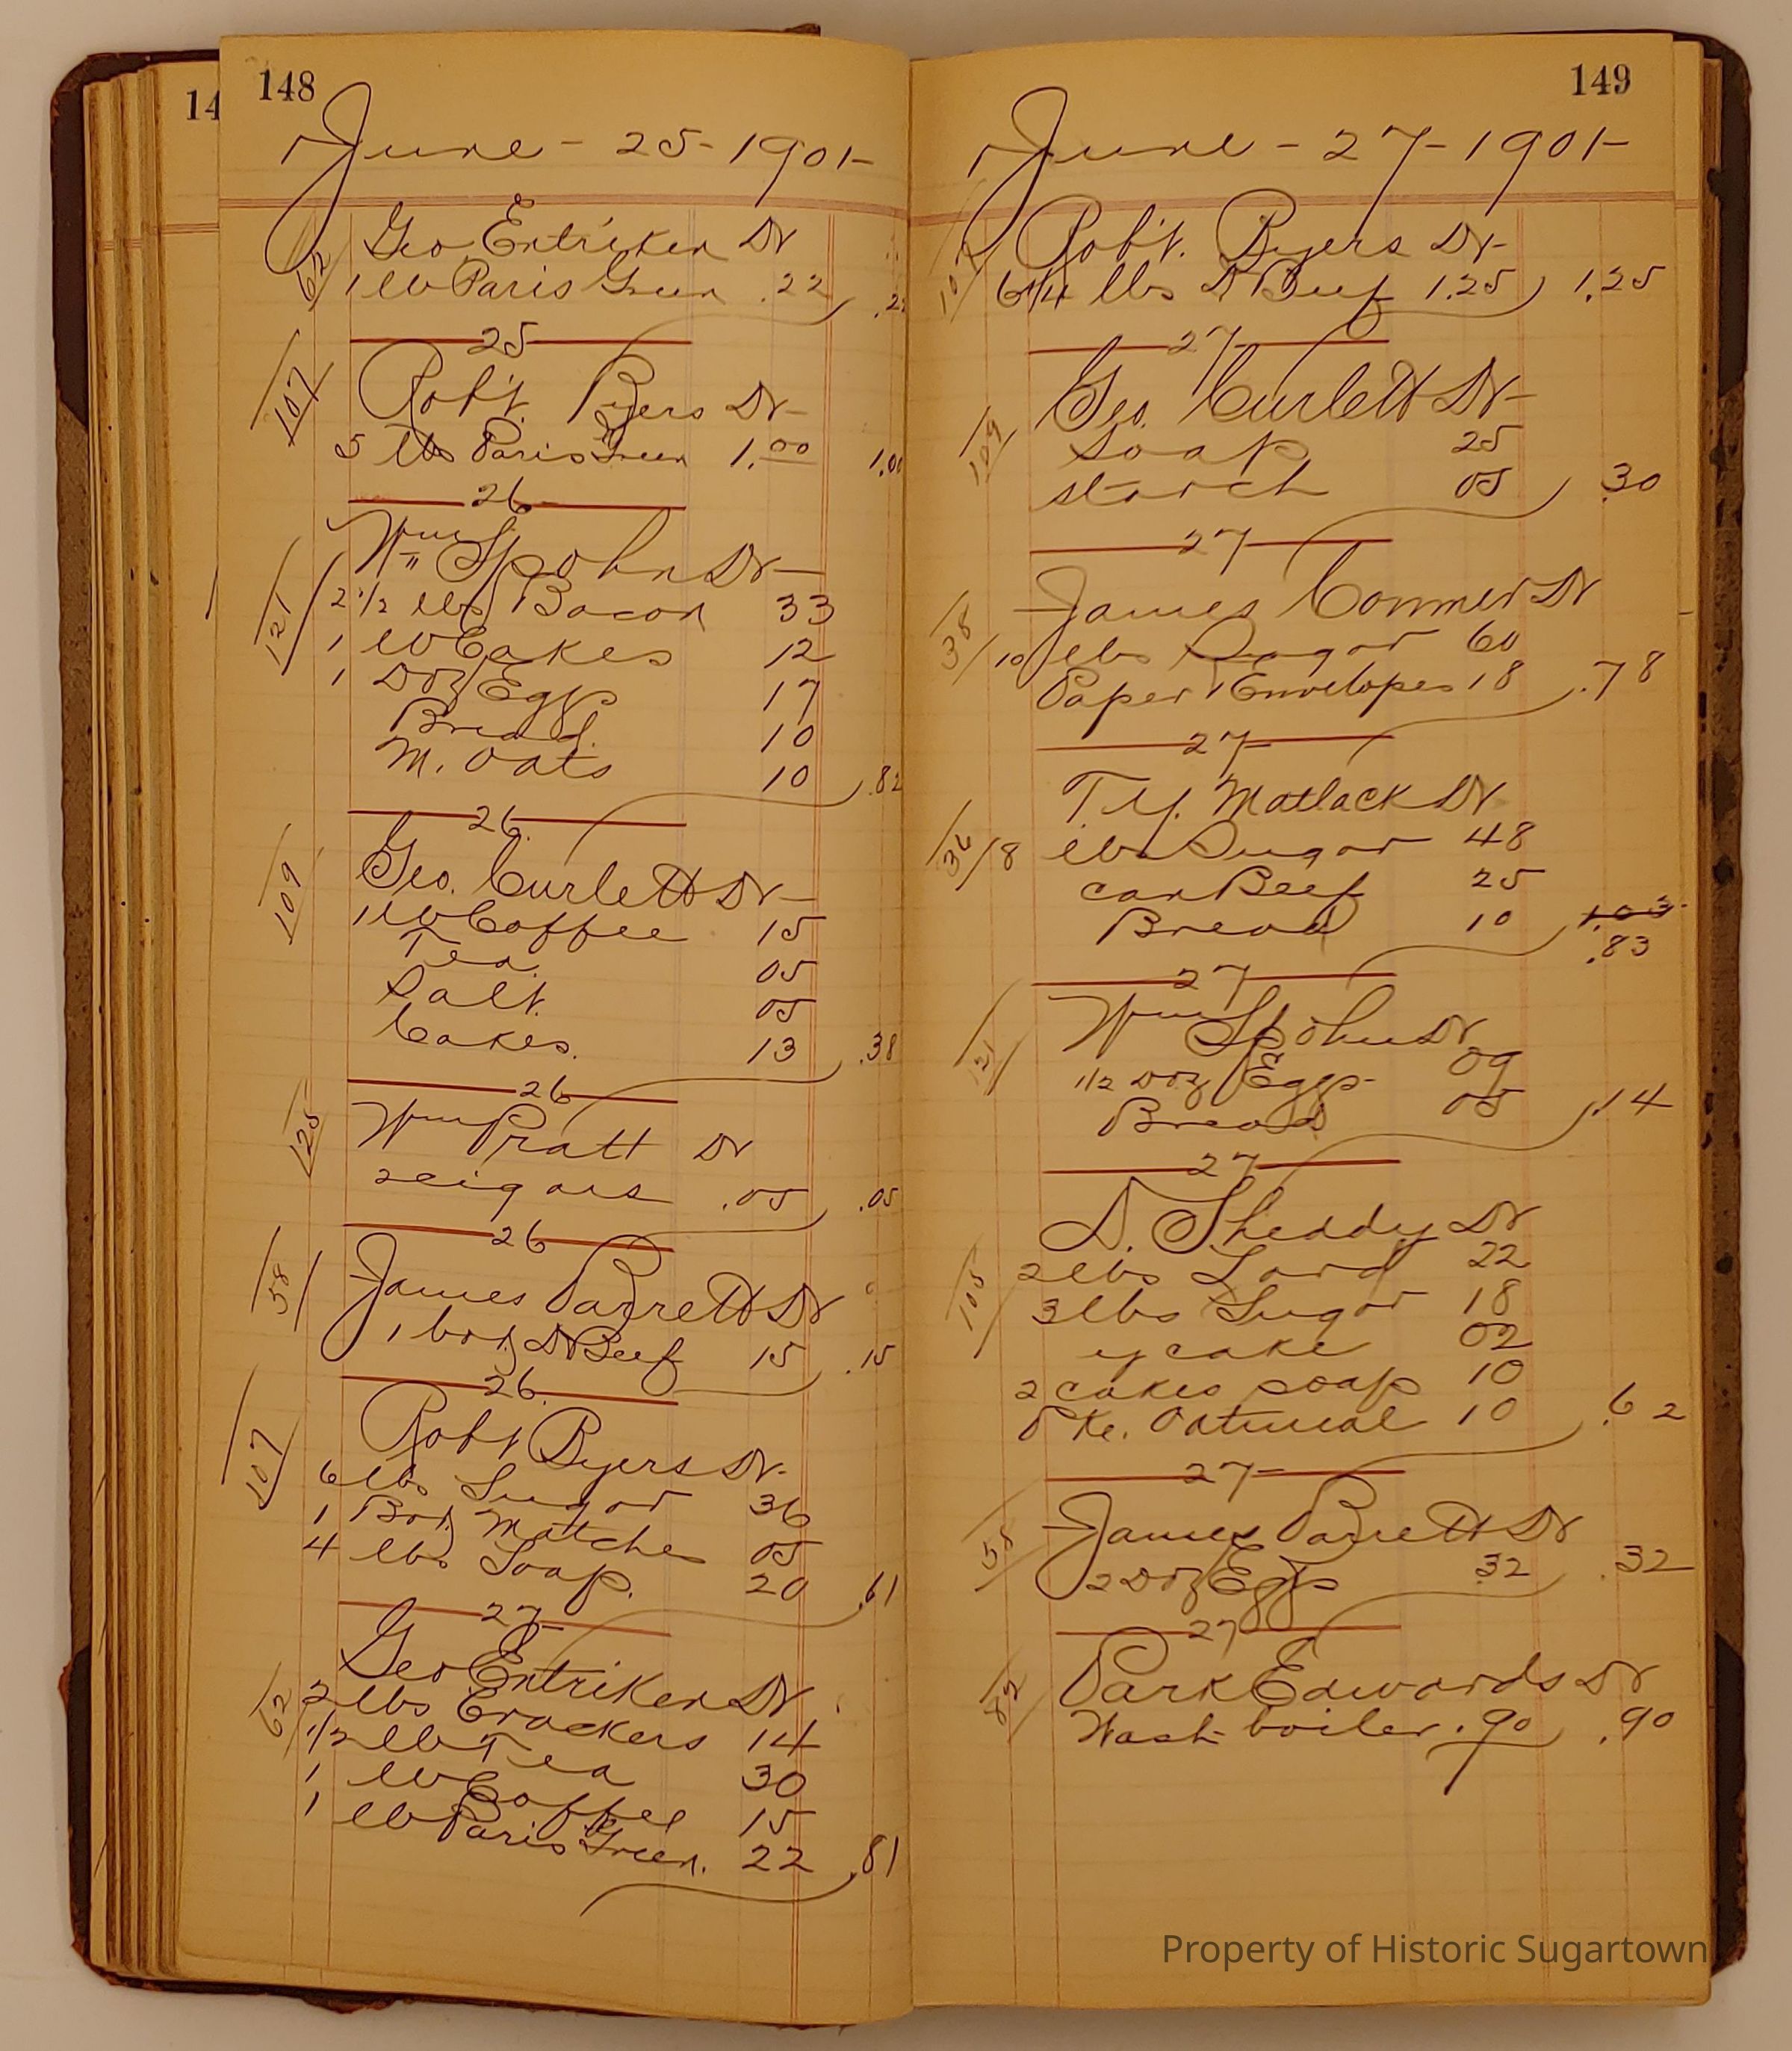 14
148
June - 25 - 1901 -
62
Geo Entriken Dr
1 lb Paris Green .22 .22
25
107
Rob't. Byers Dr -
5 lbs Paris Green 1.00 1.00
26
121
Wm Spohn Dr -
2 1/2 lbs Bacon 33
1 lb Cakes 12
1 Doz Eggs 17
Bread. 10
M. Oats 10 .82
26.
109
Geo. Curlett Dr -
1 lb Coffee 15
Tea. 05
Salt. 05
Cakes. 13 .38
26
125
Wm Pratt Dr
2 cigars .05 .05
26
58
James Barrett Dr
1 box D Beef 15 .15
26.
107
Robt Byers Dr -
6 lbs Sugar 36
1 Box Matches 05
4 lbs Soap. 20 .61
27
62
Geo Entriken Dr
2 lbs Crackers 14
1/2 lb Tea 30
1 lb Coffee 15
1 lb Paris Green. 22 .81
149
June - 27 - 1901 -
107
Rob't. Byers Dr -
6 1/4 lbs D Beef 1.25 1.25
27
109
Geo. Curlett Dr -
Soap 25
Starch 05 .30
27
38
James Conner Dr
10 lbs Sugar 60
Paper & Envelopes 18 .78
27
36
T. Y. Matlack Dr
8 lbs Sugar 48
can Beef 25
Bread 10 1.03
.83
27
121
Wm Spohn Dr
1/2 Doz Eggs 09
Bread 05 .14
27
105
D. Sheddy Dr
2 lbs Lard 22
3 lbs Sugar 18
y cake 02
2 cakes soap 10
Pke. Oatmeal 10 .62
27
58
James Barrett Dr
2 Doz Eggs .32 .32
27
82
Park Edwards Dr
Wash boiler .90 .90
Property of Historic Sugartown